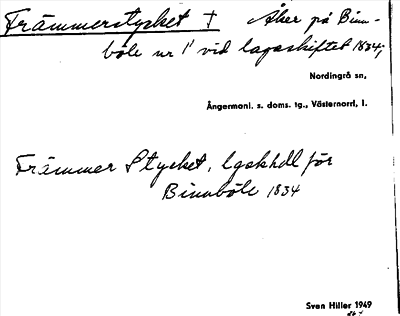 Främmerstycket † Åker på Binn-
böle nr 1 vid lagaskiftet 1834;
Nordingrå sn,
Ångermanl. s. doms. tg., Västernorrl, l.
Främmer Stycket, lgskhdl för
Binnböle 1834
Sven Hiller 1949